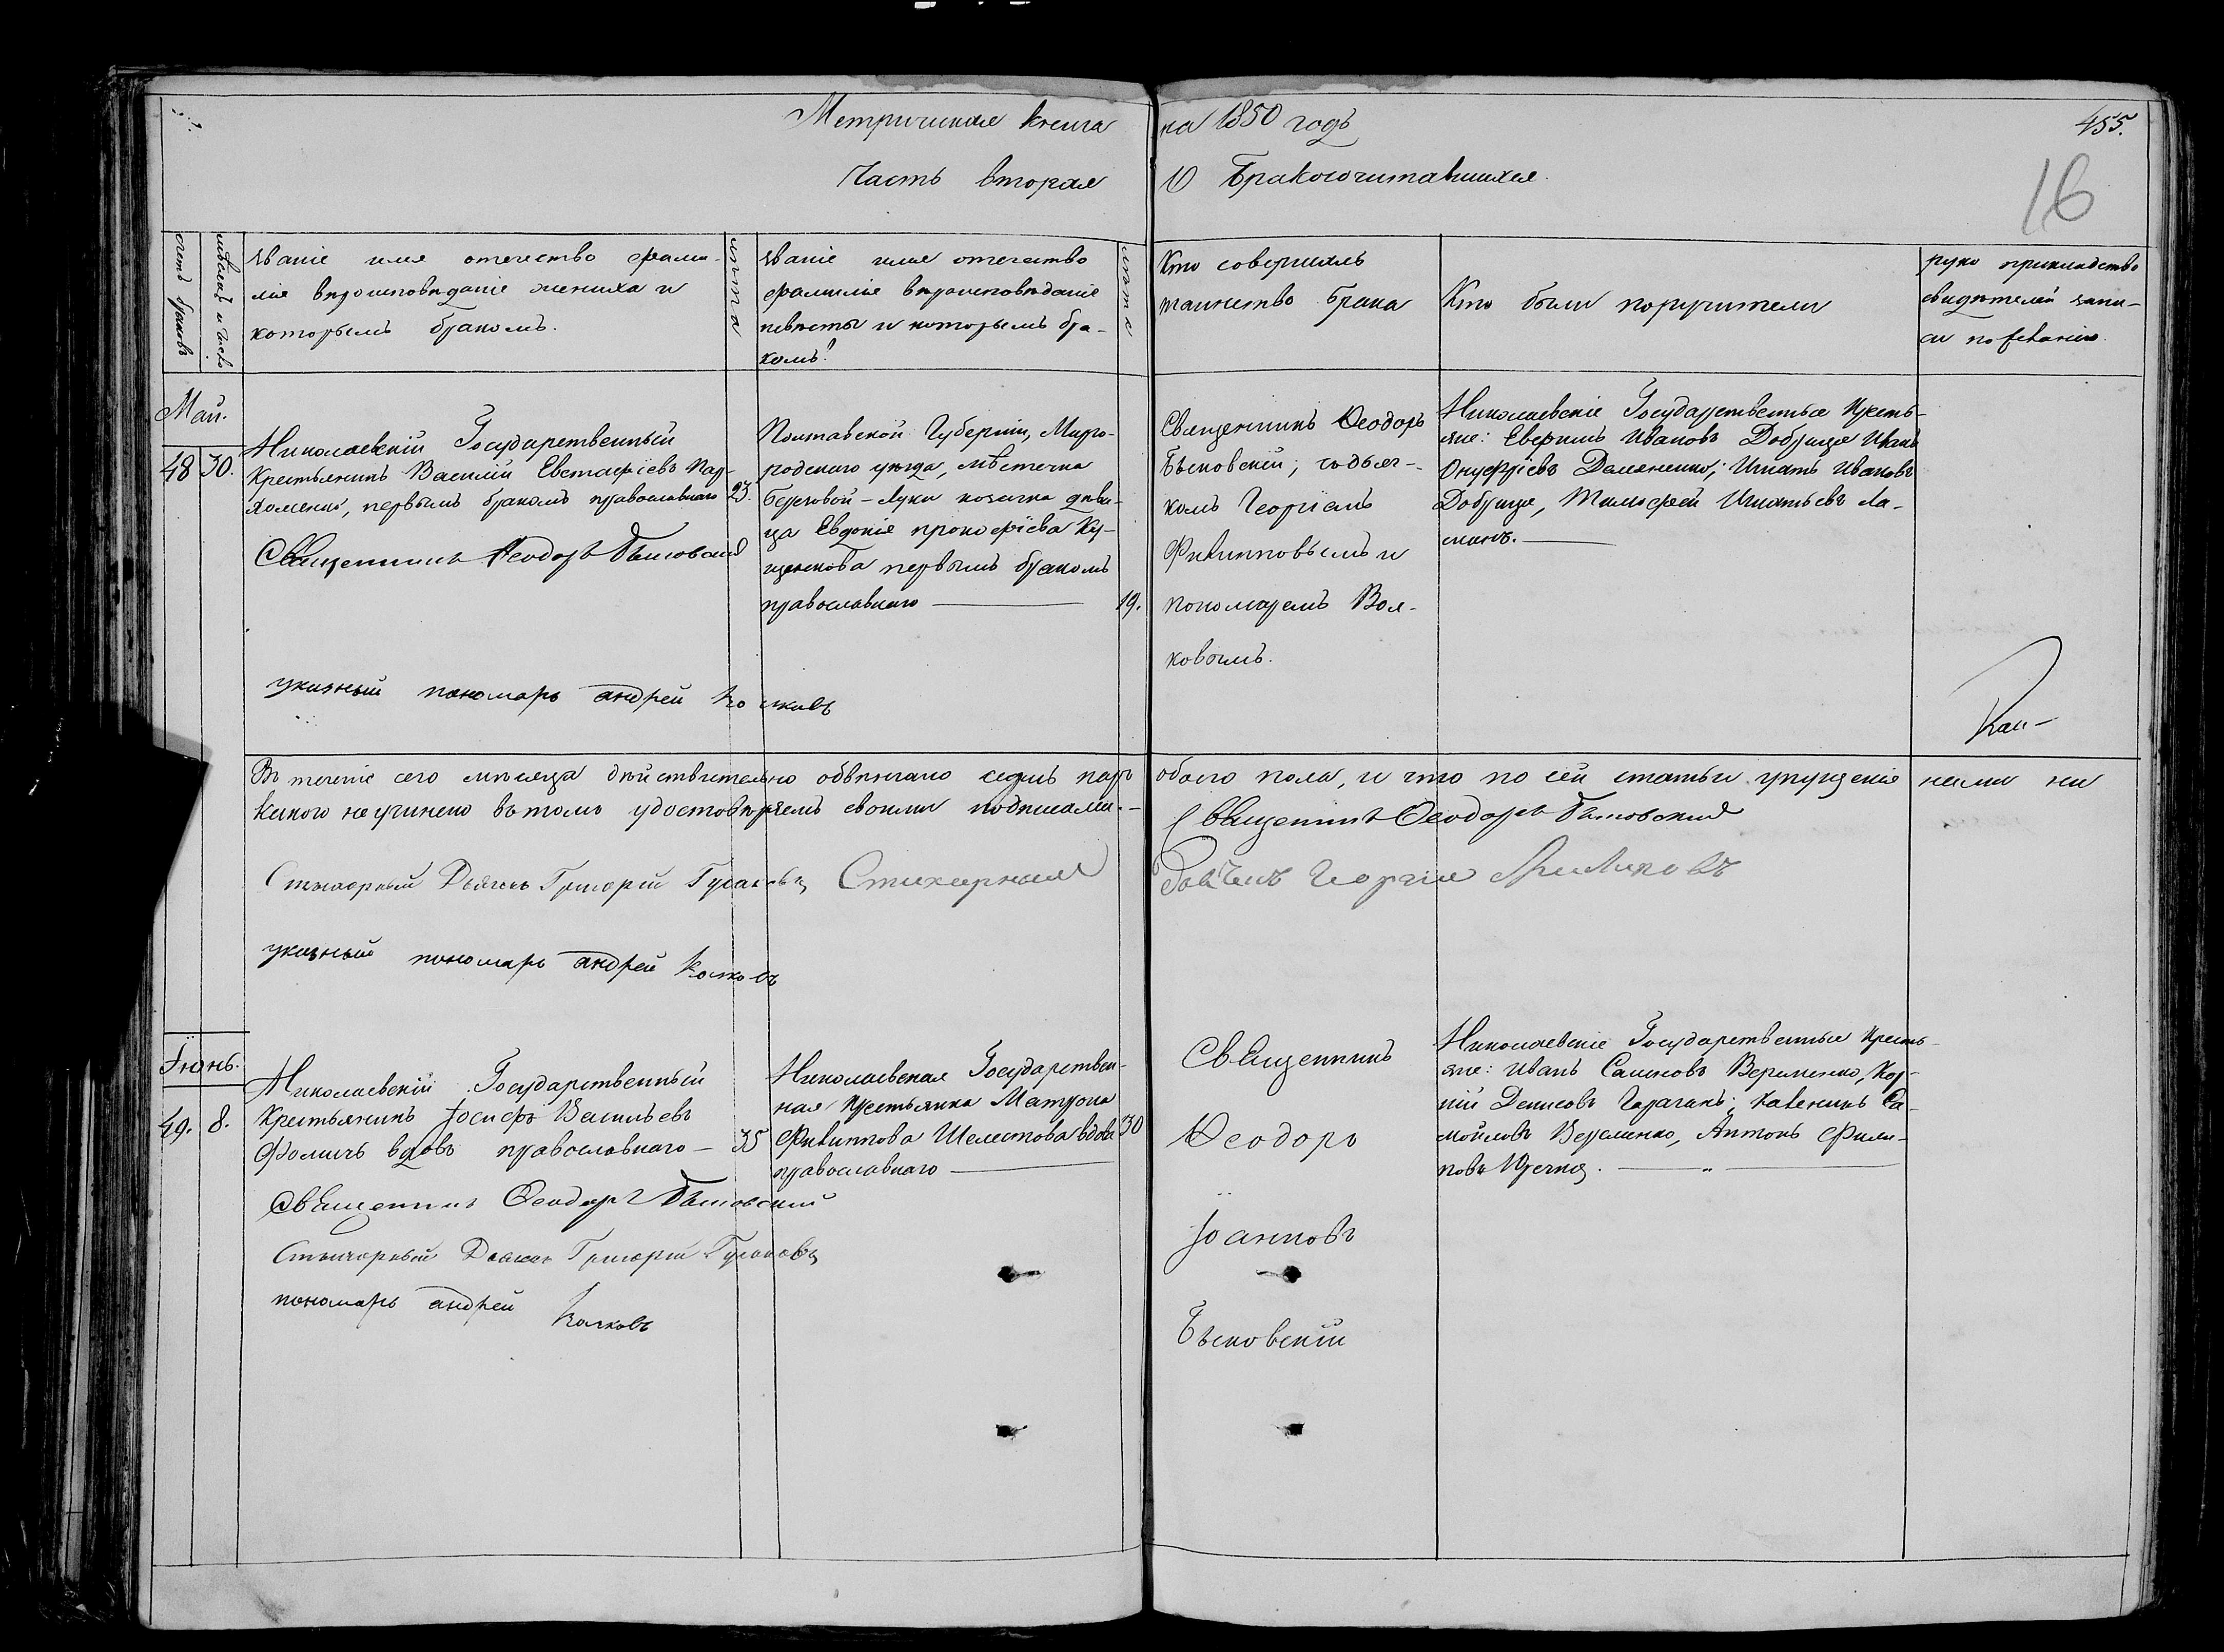 Метрическая книга на 1850 годъ
455.
Часть вторая О Бракосочитавшихся.
16
счетъ браковъ
мѣсяцъ и число
званіе имя отечество фами-
лія вѣроисповѣданіе жениха и
которымъ бракомъ.
лѣта
званіе имя отечество
фамилія вѣроисповѣданіе
невѣсты и которымъ бра-
комъ?
лѣта
Кто совершалъ
таинство брака
Кто были поручители
руко прикладство
свидѣтелей запи-
си по желанію.
Май.
48 30.
Николаевскій Государственный
Крестьянинъ Василій Евстафіевъ Пар-
хоменко, первымъ бракомъ православнаго 23.
Священникъ Феодоръ Быковскій
указный пономарь андрей Волковъ
Полтавской Губерніи, Миро-
родскаго уѣзда, мѣстечка
Березовой-Луки козачка дѣви-
ца Евдокія прокофіева Ку-
ценкова первымъ бракомъ
православнаго 19.
Священникъ Ѳеодоръ
Быковскій, съ дьяч-
комъ Георгіемъ
Филипповымъ и
пономаремъ Вол-
ковымъ.
Николаевскіе Государственные Кресть-
яне: Евфимъ Ивановъ Добрица Иванъ
Онуфріевъ Демяненко; Игнатъ Ивановъ
Добрица, Тимофей Игнатьевъ Ла-
Въ теченіе сего мѣсяца дѣйствительно обвѣнчано седмь паръ обоего пола, и что по сей статьи упущенія нами ни
какого не учинено въ томъ удостовѣряемъ своими подписами.
Священникъ Ѳеодоръ Быковскій
Стихарный Дьячокъ Григорій Гусаковъ Стихарный Дьячекъ Георгій Филиповъ
указный пономарь андрей Волковъ
Іюнь.
49. 8.
Николаевскій Государственный
Крестьянинъ Іосифъ Васильевъ
Фомичъ вдовъ православнаго 35
Священникъ Ѳеодоръ Быковскій
Стихарный Дьячокъ Григорій Гусаковъ
пономарь андрей Волковъ
Николаевская Государствен-
ная Крестьянка Матрона
Филиппова Шелестова вдова 30
православнаго
Священникъ
Ѳеодоръ
Іоанновъ
Быковскій
Николаевскіе Государственные Кресть-
яне: Иванъ Самоиловъ Веременко, Кор-
ній Денисовъ Калениkъ Са-
мойловъ Веременко, Антонъ Филип-
повъ